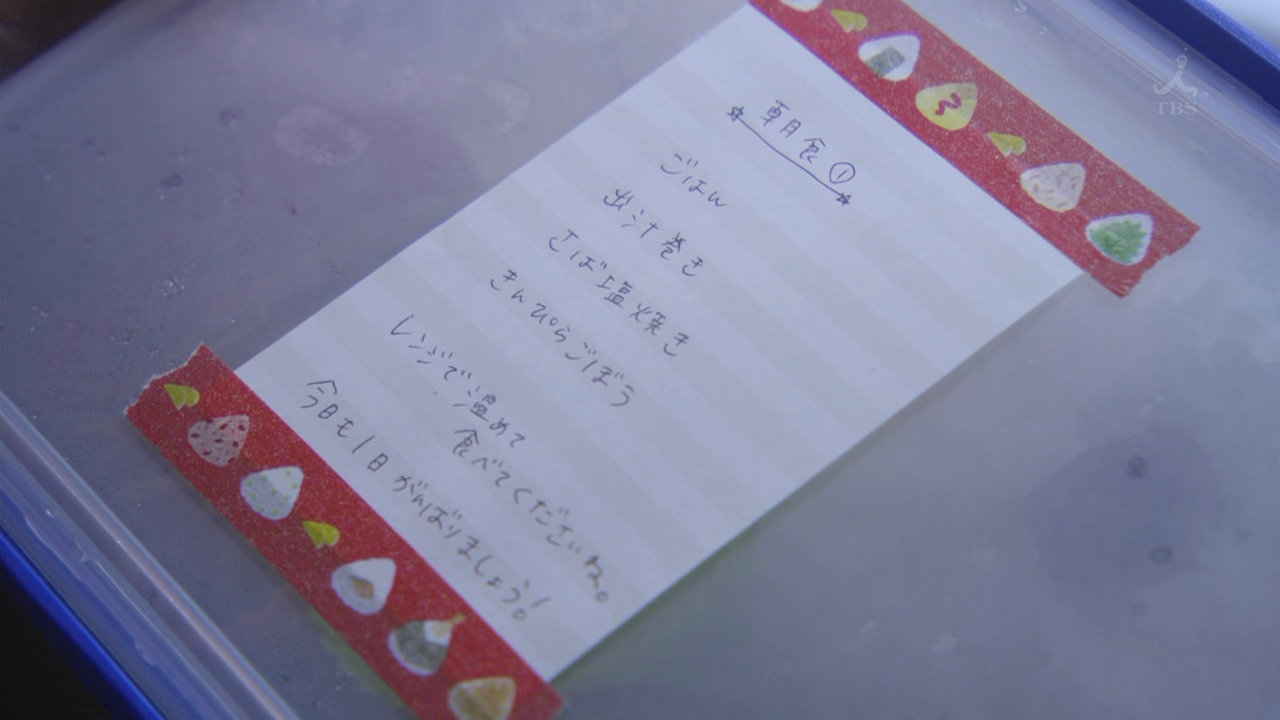 朝食①
ごはん
出汁巻き
さば塩焼き
きんぴらごぼう
レンジで温めて
食べてくださいね。
今日も1日がんばりましょう!
TBS